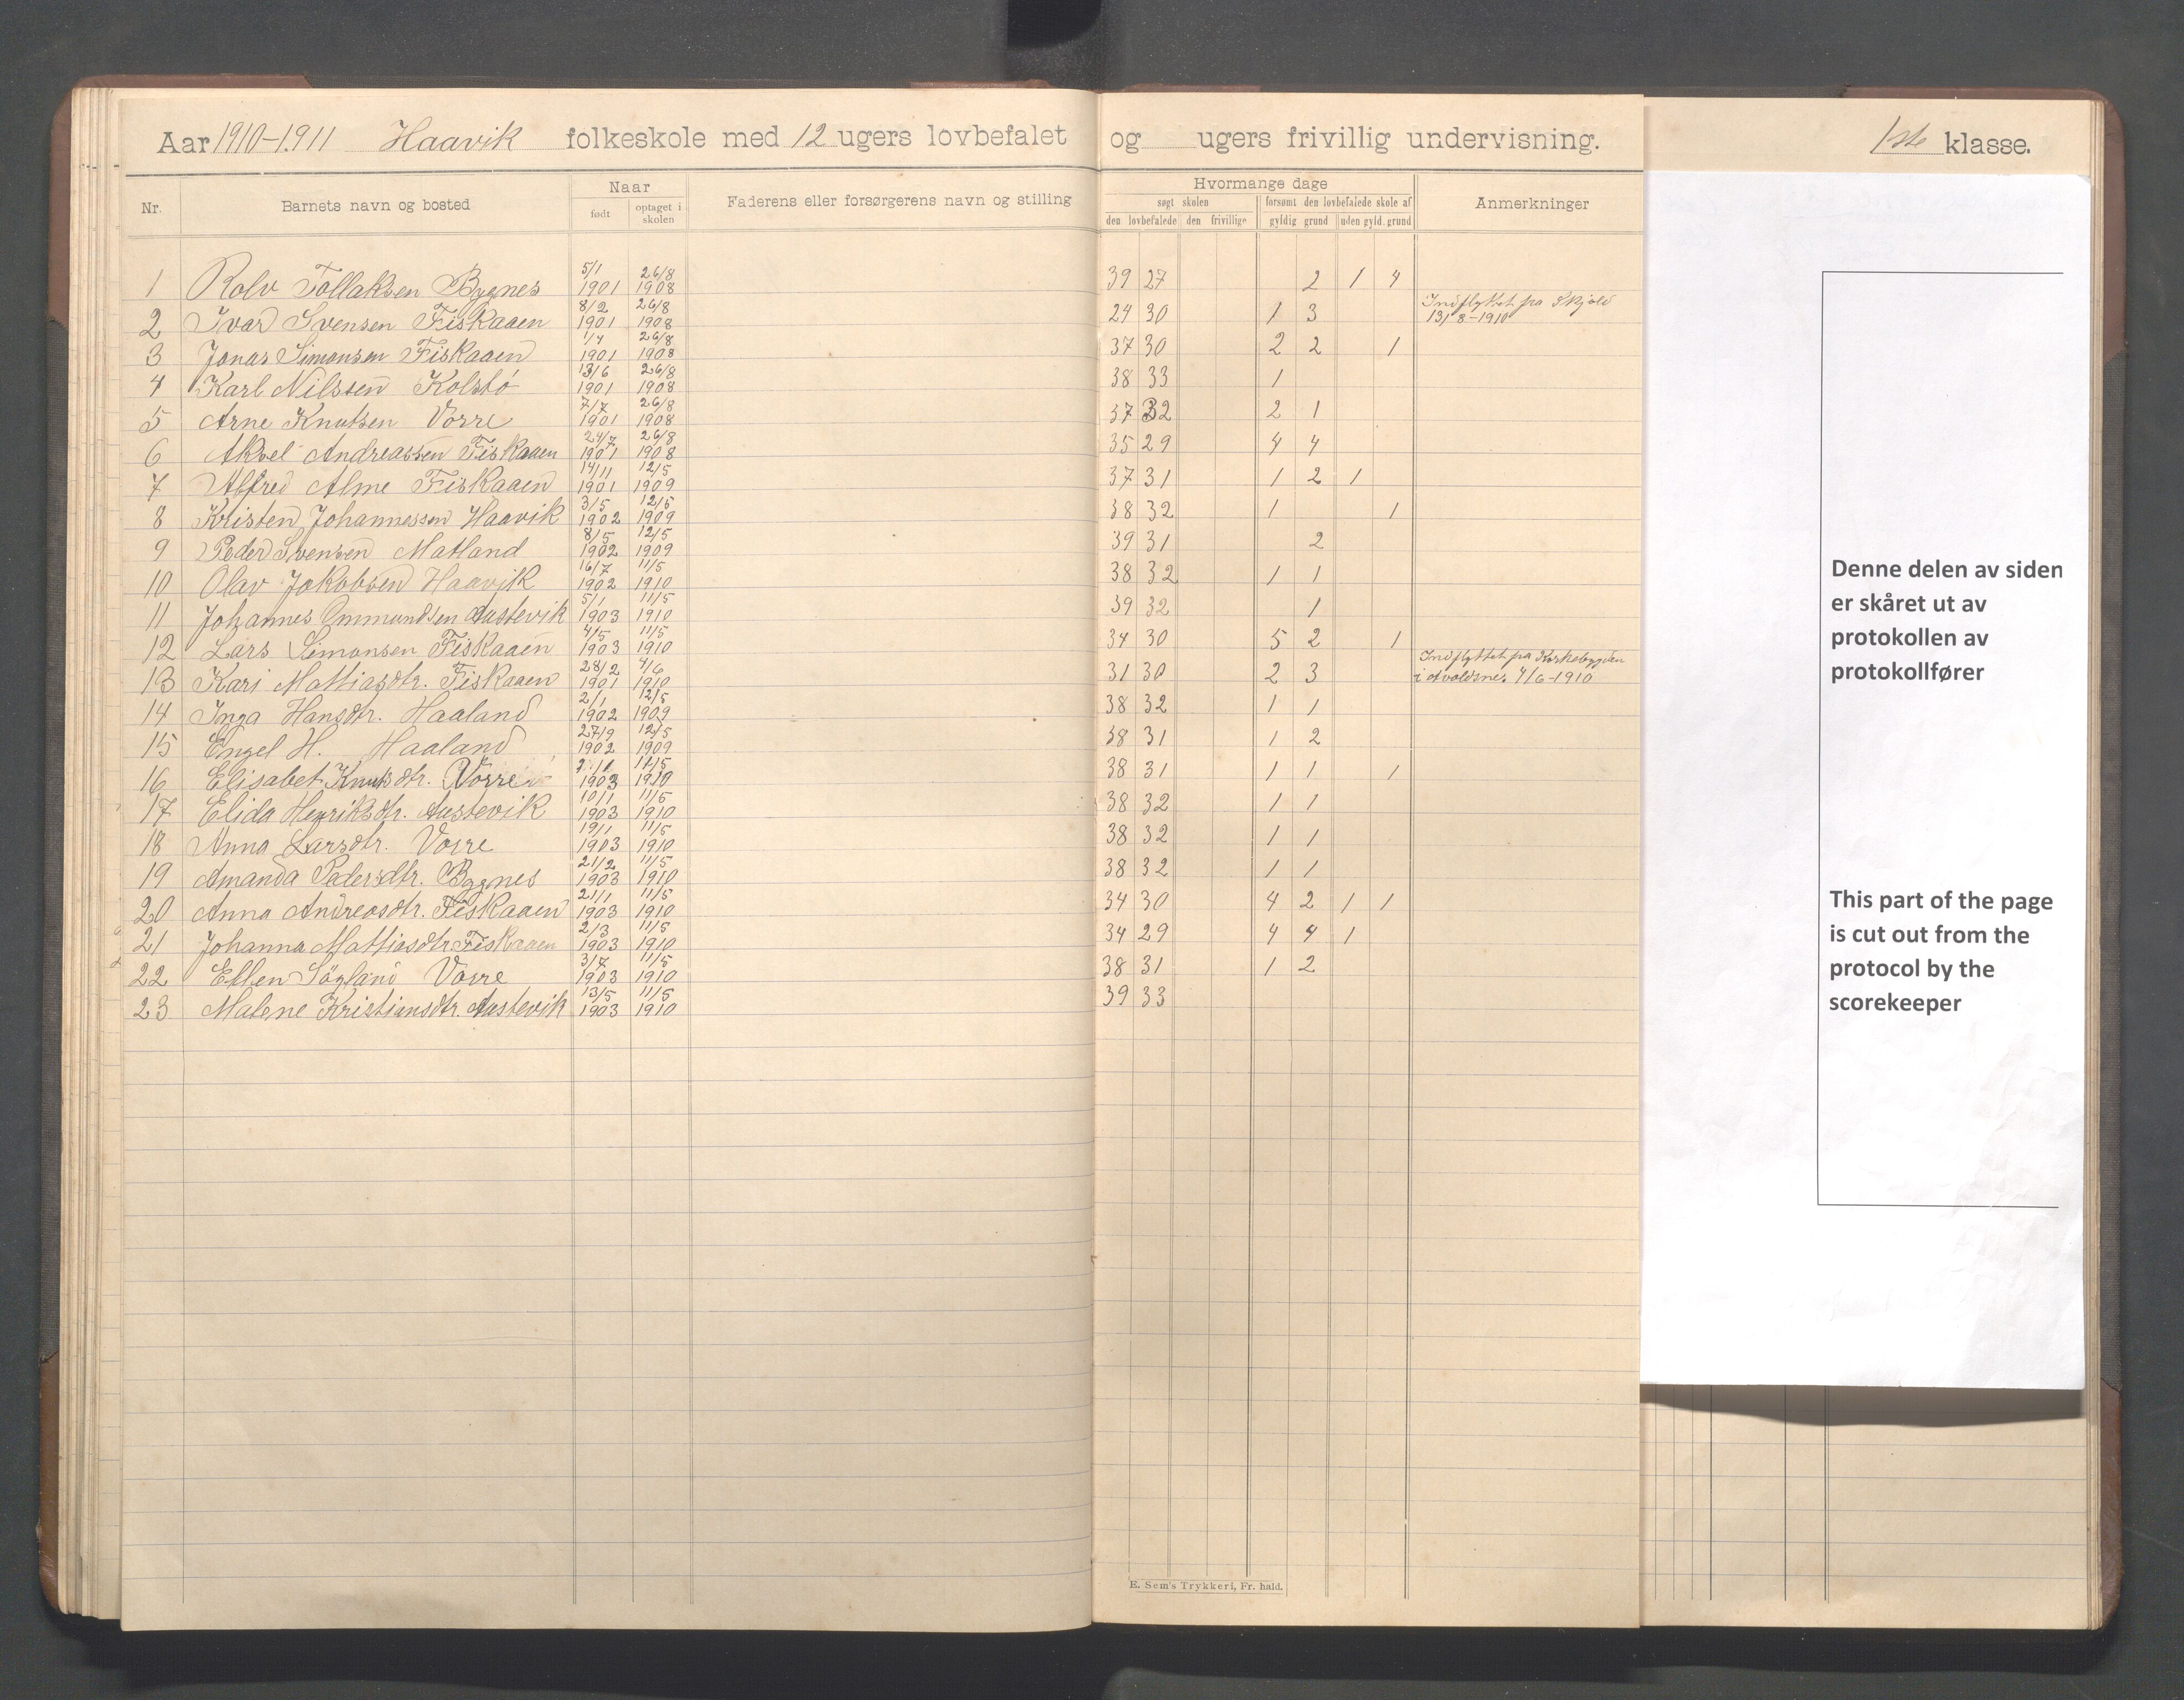 Aar 1910-1911 Haavik folkeskole med 12 ugers lovbefalet og ugers frivillig undervisning. 1ste klasse.
Nr. Barnets navn og bosted Naar født optaget i skolen Faderens eller forsørgerens navn og stilling Hvormange dage søgt skolen den lovbefalede den frivillige forsømt den lovbefalede skole af gyldig grund uden gyld. grund Anmerkninger
1 Rolv Tollaksen Bygnes 5/1 1901 26/8 1908 39 27 2 1 4
2 Ivar Svensen Fiskaaen 8/2 1901 26/8 1908 24 30 1 3 Indflyttet fra Skjold 13/8-1910
3 Jonas Simonsen Fiskaaen 1/4 1901 26/8 1908 37 30 2 2 1
4 Karl Nilssen Kolstö 13/6 1901 26/8 1908 38 33 1
5 Arne Knutsen Vorre 7/7 1901 26/8 1908 37 32 2 1
6 Aksel Andreassen Fiskaaen 24/7 1901 26/8 1908 35 29 4 4
7 Alfred Alme Fiskaaen 14/11 1901 12/5 1909 37 31 1 2 1
8 Kristen Johannessen Haavik 3/5 1902 12/5 1909 38 32 1 1
9 Peder Svensen Matland 8/5 1902 12/5 1909 39 31 2
10 Olav Jakobsen Haavik 16/7 1902 11/5 1910 38 32 1 1
11 Johannes Ommundsen Austevik 5/1 1903 11/5 1910 39 32 1
12 Lars Simonsen Fiskaaen 4/5 1903 11/5 1910 34 30 5 2 1
13 Kari Mattiasdtr. Fiskaaen 28/2 1901 4/6 1910 31 30 2 3 Indflyttet fra i Avaldsnes 4/6-1910
14 Inga Hansdtr. Haaland 2/1 1902 12/5 1909 38 32 1 1
15 Engel H. Haaland 27/9 1902 12/5 1909 38 31 1 2
16 Elisabet Knutsdtr. Vorre 1903 11/5 1910 38 31 1 1 1
17 Elida Henriksdtr. Austevik 10/1 1903 11/5 1910 38 32 1 1
18 Anna Larsdtr. Vorre 19/1 1903 11/5 1910 38 32 1 1
19 Amanda Pedersdtr. Bygnes 21/2 1903 11/5 1910 38 32 1 1
20 Anna Andreasdtr. Fiskaaen 21/1 1903 11/5 1910 34 30 4 2 1 1
21 Johanna Mattiasdtr. Fiskaaen 2/3 1903 11/5 1910 34 29 4 4 1
22 Ellen Vorre 3/7 1903 11/5 1910 38 31 1 2
23 Malene Kristiansdtr. Austevik 13/5 1903 11/5 1910 39 33
E. Sem's Trykkeri, Fr. hald.
Denne delen av siden
er skåret ut av
protokollen av
protokollfører
This part of the page
is cut out from the
protocol by the
scorekeeper